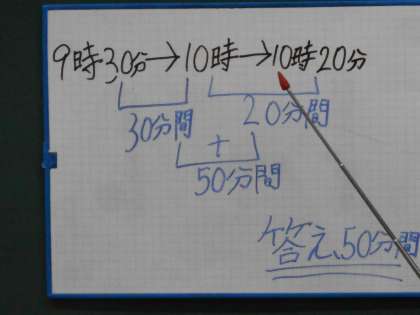 9時30分→10時→10時20分
30分間 20分間
+
50分間
答え、50分間